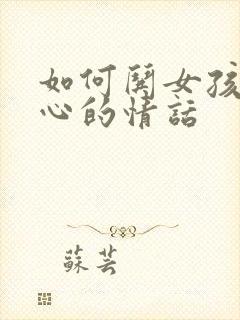 如何闋女孩
心的情話
蘇芸